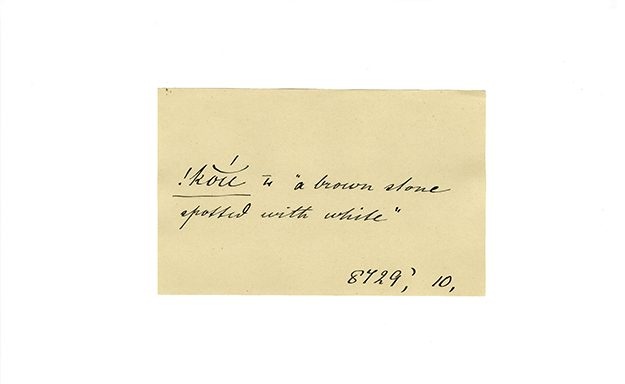 !kŏ́ü is "a brown stone
spotted with white"
8729', 10,